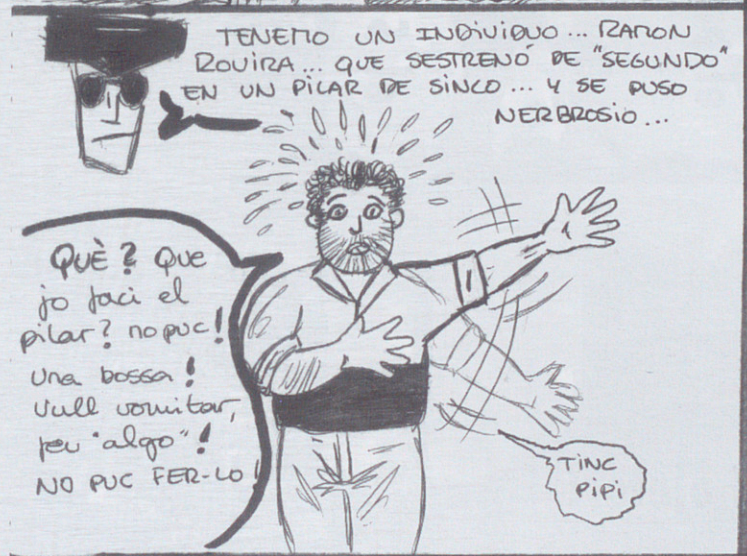 TENEMO UN INDIVIDUO... RAMON
ROVIRA... QUE SESTRENÓ DE "SEGUNDO"
EN UN PILAR DE SINCO... Y SE PUSO
NERBROSIO...
QUÈ? QUE
jo faci el
pilar? no puc!
Una bossa!
Vull vomitar,
feu "algo"!
NO PUC FER-LO!
TINC
PIPI